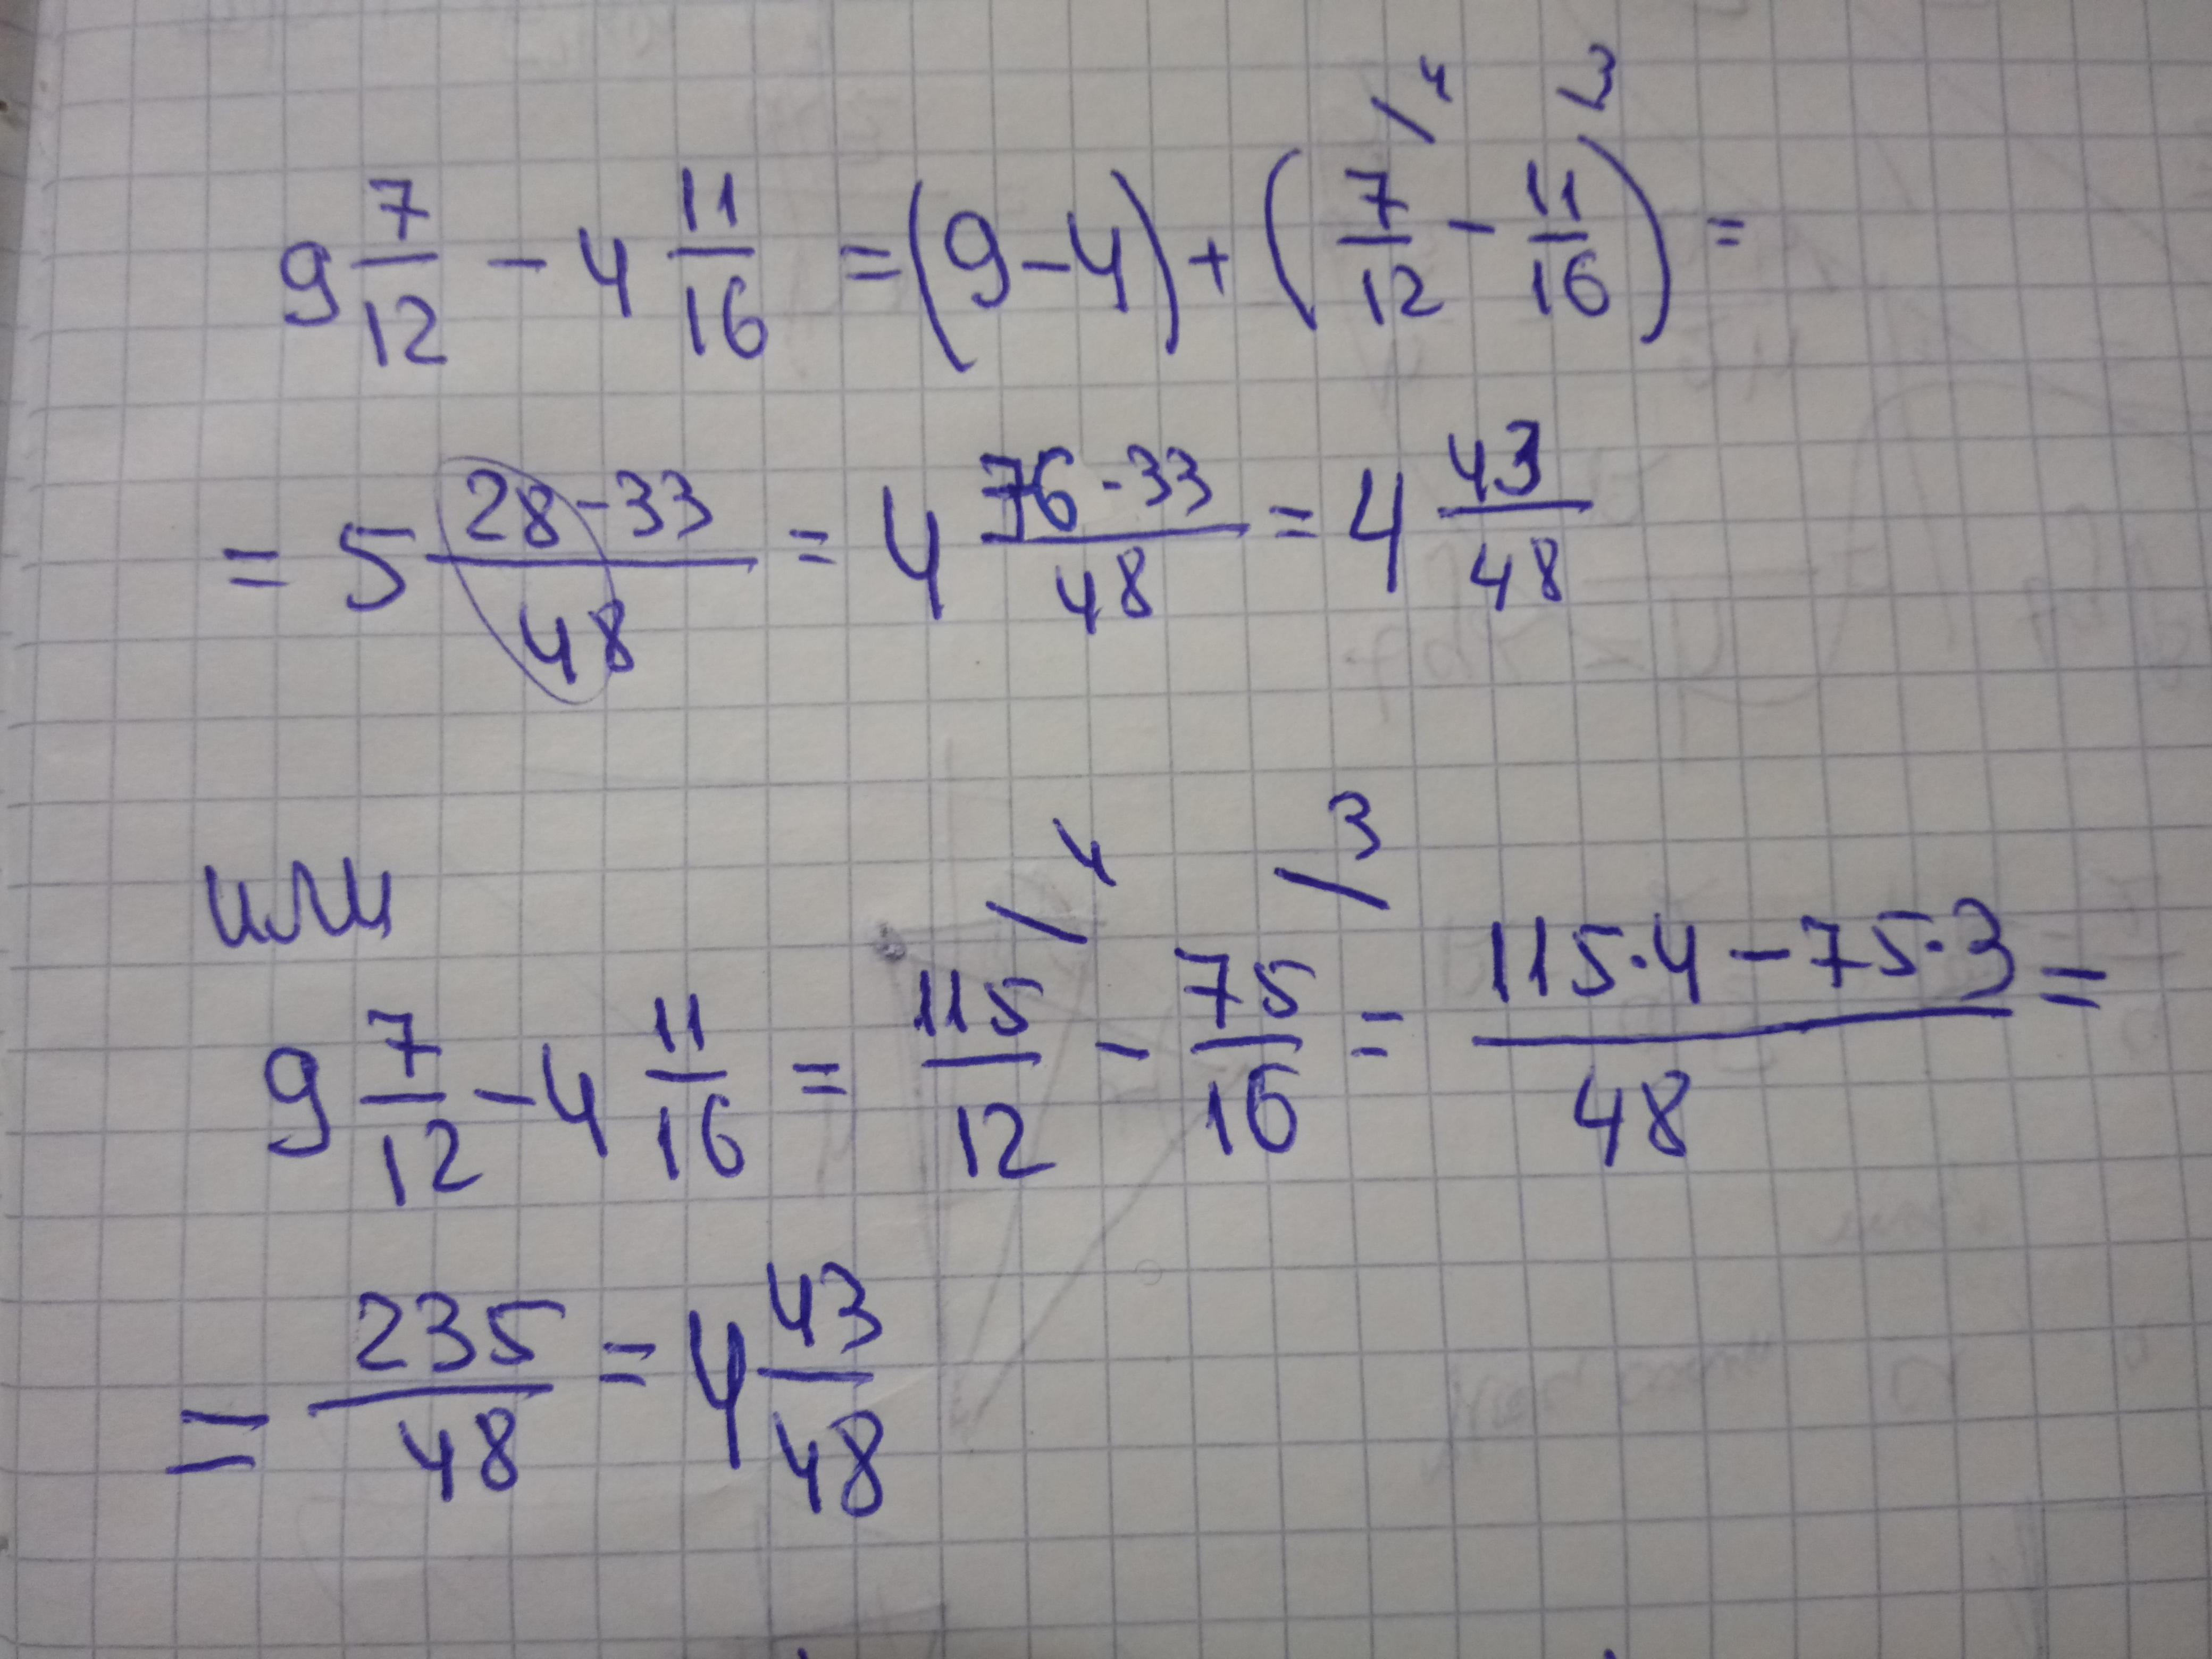 9 7/12 - 4 11/16 = (9-4) + (7/12 \4 - 11/16 \3) =
= 5 28-33/48 = 4 76-33/48 = 4 43/48
или
9 7/12 - 4 11/16 = 115/12 \4 - 75/16 \3 = 115·4-75·3/48 =
= 235/48 = 4 43/48